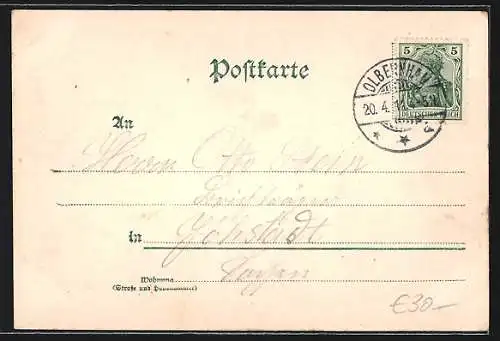 Postkarte
5 5
DEUTSCHES REICH
OLBERNHAU
20.4.
An
Herrn Otto Stein
Briefträger
in Jöhstadt
Sachsen
Wohnung
(Straße und Hausnummer)
€30-